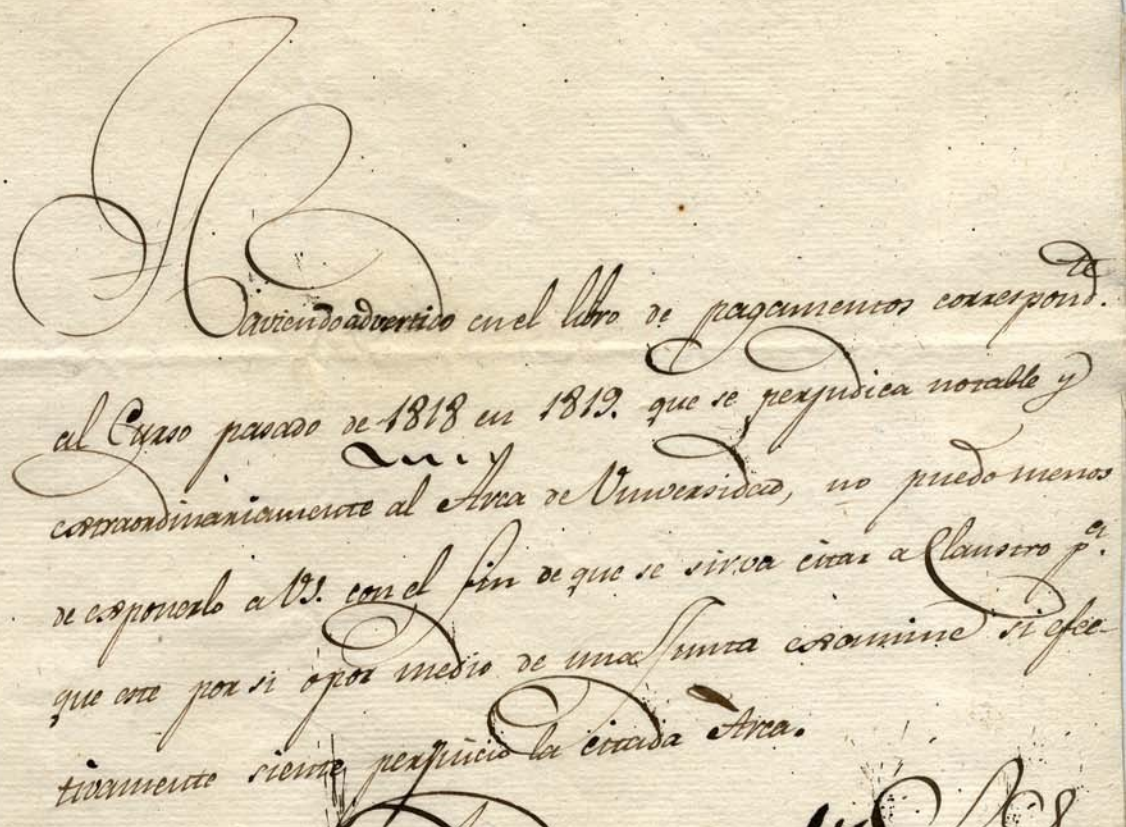 Haviendo advertido en el libro de pagamentos correspond.te
al Curso pasado de 1818 en 1819. que se perjudica notable y
extraordinariamente al Arca de Universidad, no puedo menos
de exponerlo a VS. con el fin de que se sirva citar a Claustro p.a
que este por si o por medio de una Junta examine si efec-
tivamente siente perjuicio la citada Arca.